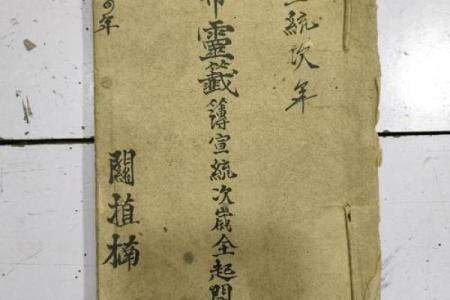 宣統次年
帝靈籤簿宣統次歲全起閏
年
關植楠